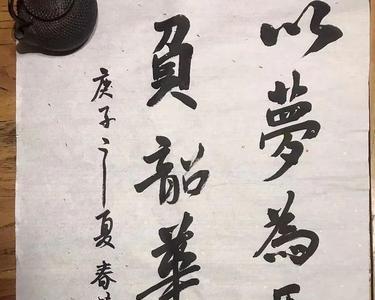 以夢為
負韶華
庚子之夏春